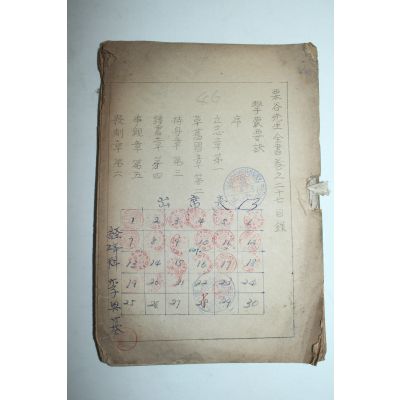 栗谷先生全書卷之二十七目錄
擊蒙要訣
序
立志章第一
革舊習章第二
持身章第三
讀書章第四
事親章第五
喪制章第六
46
出席表 13
1 2 3 4 5 6
7 8 9 10 11 12
13 14 15 16 17 18
19 20 21 22 23 24
25 26 27 28 29 30